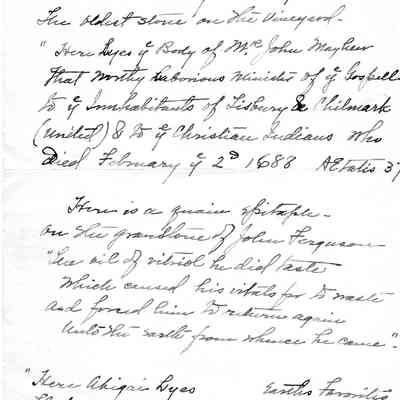 The oldest stone on the Vineyard -
"Here Lyes ye Body of Mr. John Mayhew
that worthy Laborious Minister of ye Gospell
to ye Innhabitants of Tisbury & Chilmark
(united) & to ye Christian Indians Who
Died February ye 2d 1688 AEtatis 37
Here is a quain epitaph -
on the gravestone of John Ferguson
"The oil of vitriol he did taste
Which caused his vitals for to waste
and forced him to return again
Unto the earth from whence he came" -
"Here Abigai Lyes
Earths Favorite